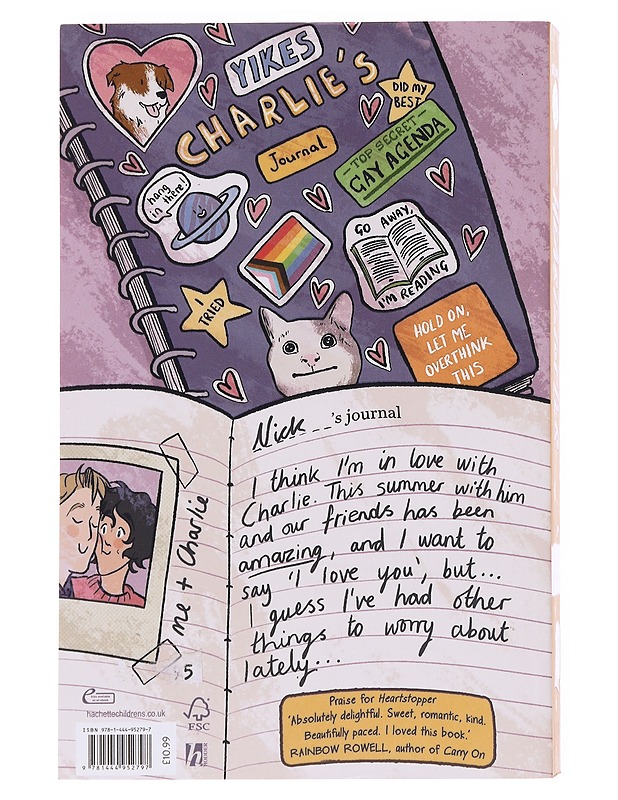 YIKES
CHARLIE'S
Journal
DID MY
BEST
- TOP SECRET -
GAY AGENDA
hang
in there!
GO AWAY,
I'M READING
I
TRIED
HOLD ON,
LET ME
OVERTHINK
THIS
Nick __'s journal
I think I'm in love with
Charlie. This summer with him
and our friends has been
amazing, and I want to
say 'I love you', but...
I guess I've had other
things to worry about
lately...
me + Charlie
5
hachettechildrens.co.uk
FSC
ISBN 978-1-444-95279-7
9 781444 952797
£10.99
h
HODDER
Praise for Heartstopper
'Absolutely delightful. Sweet, romantic, kind.
Beautifully paced. I loved this book.'
RAINBOW ROWELL, author of Carry On